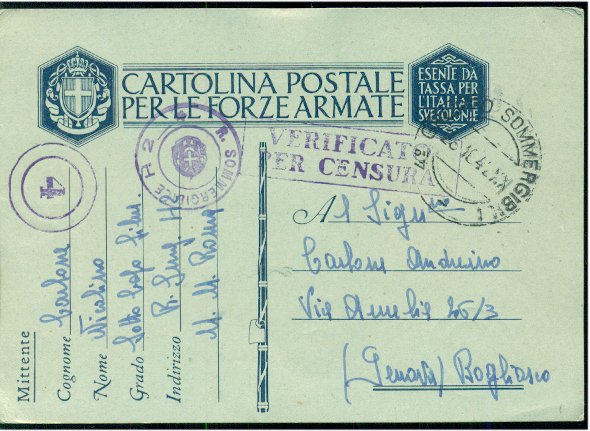 CARTOLINA POSTALE
PER LE FORZE ARMATE
ESENTE DA
TASSA PER
L'ITALIA
SUE COLONIE
VERIFICATO
PER CENSURA
R. SOMMERGIBILE H2
SOMMERGIBILI
Mittente
Cognome Carbone
Nome Nicolino
Grado Sotto Capo
Indirizzo R. Smg H2
M. M. Roma
Al Sigr
Carbone Andreino
Via Aurelia 25/3
(Genova) Bogliasco